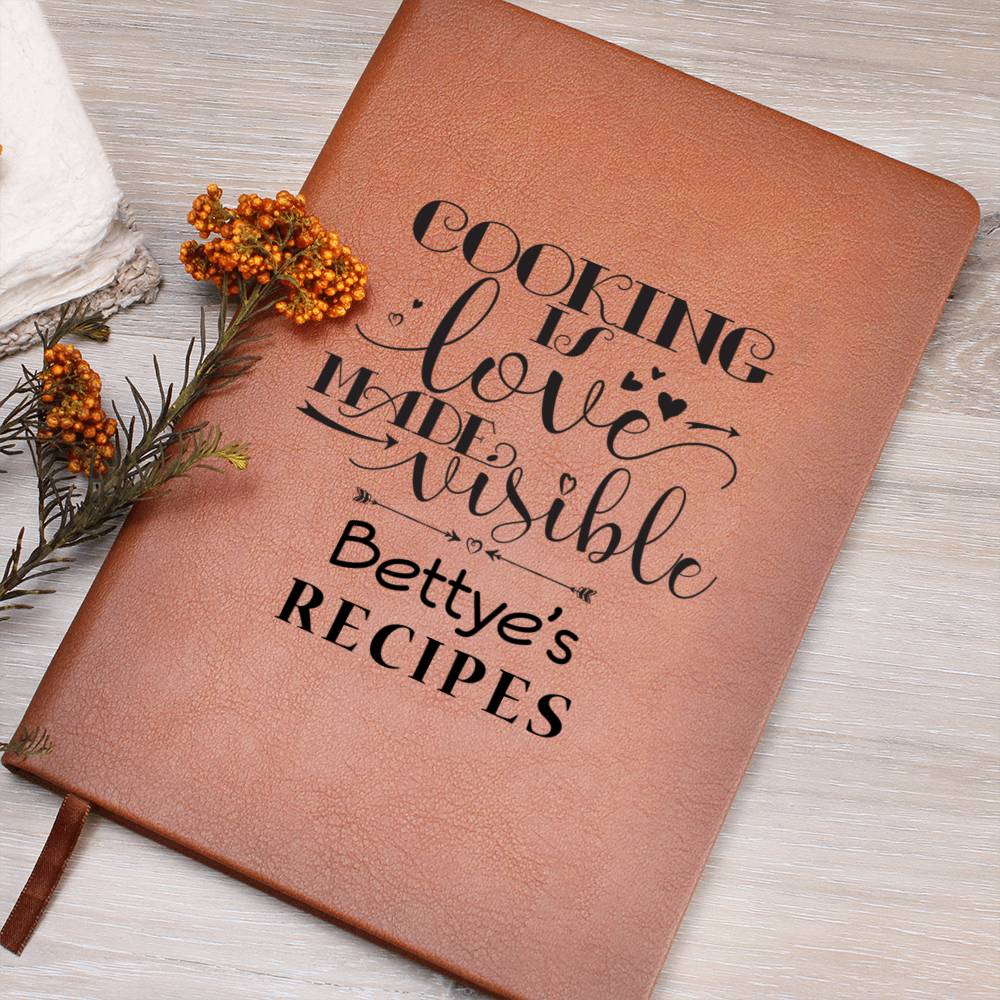 COOKING
IS
love
MADE
visible
Bettye's
RECIPES